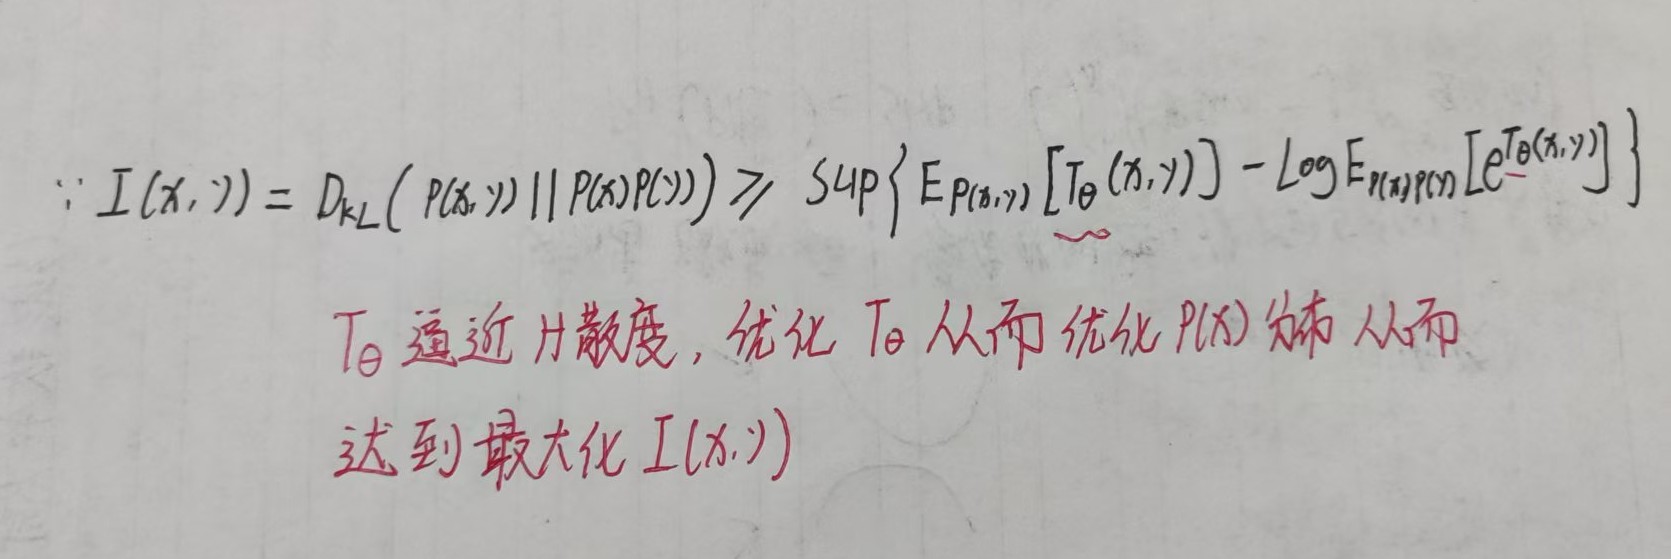 ∵ I(x,y) = D_KL( P(x,y) || P(x)P(y) ) ⩾ Sup{ E_P(x,y) [T_θ(x,y)] - Log E_P(x)P(y) [e^T_θ(x,y)] }
T_θ 逼近 H散度, 优化 T_θ 从而 优化 P(x) 分布 从而
达到 最大化 I(x,y)